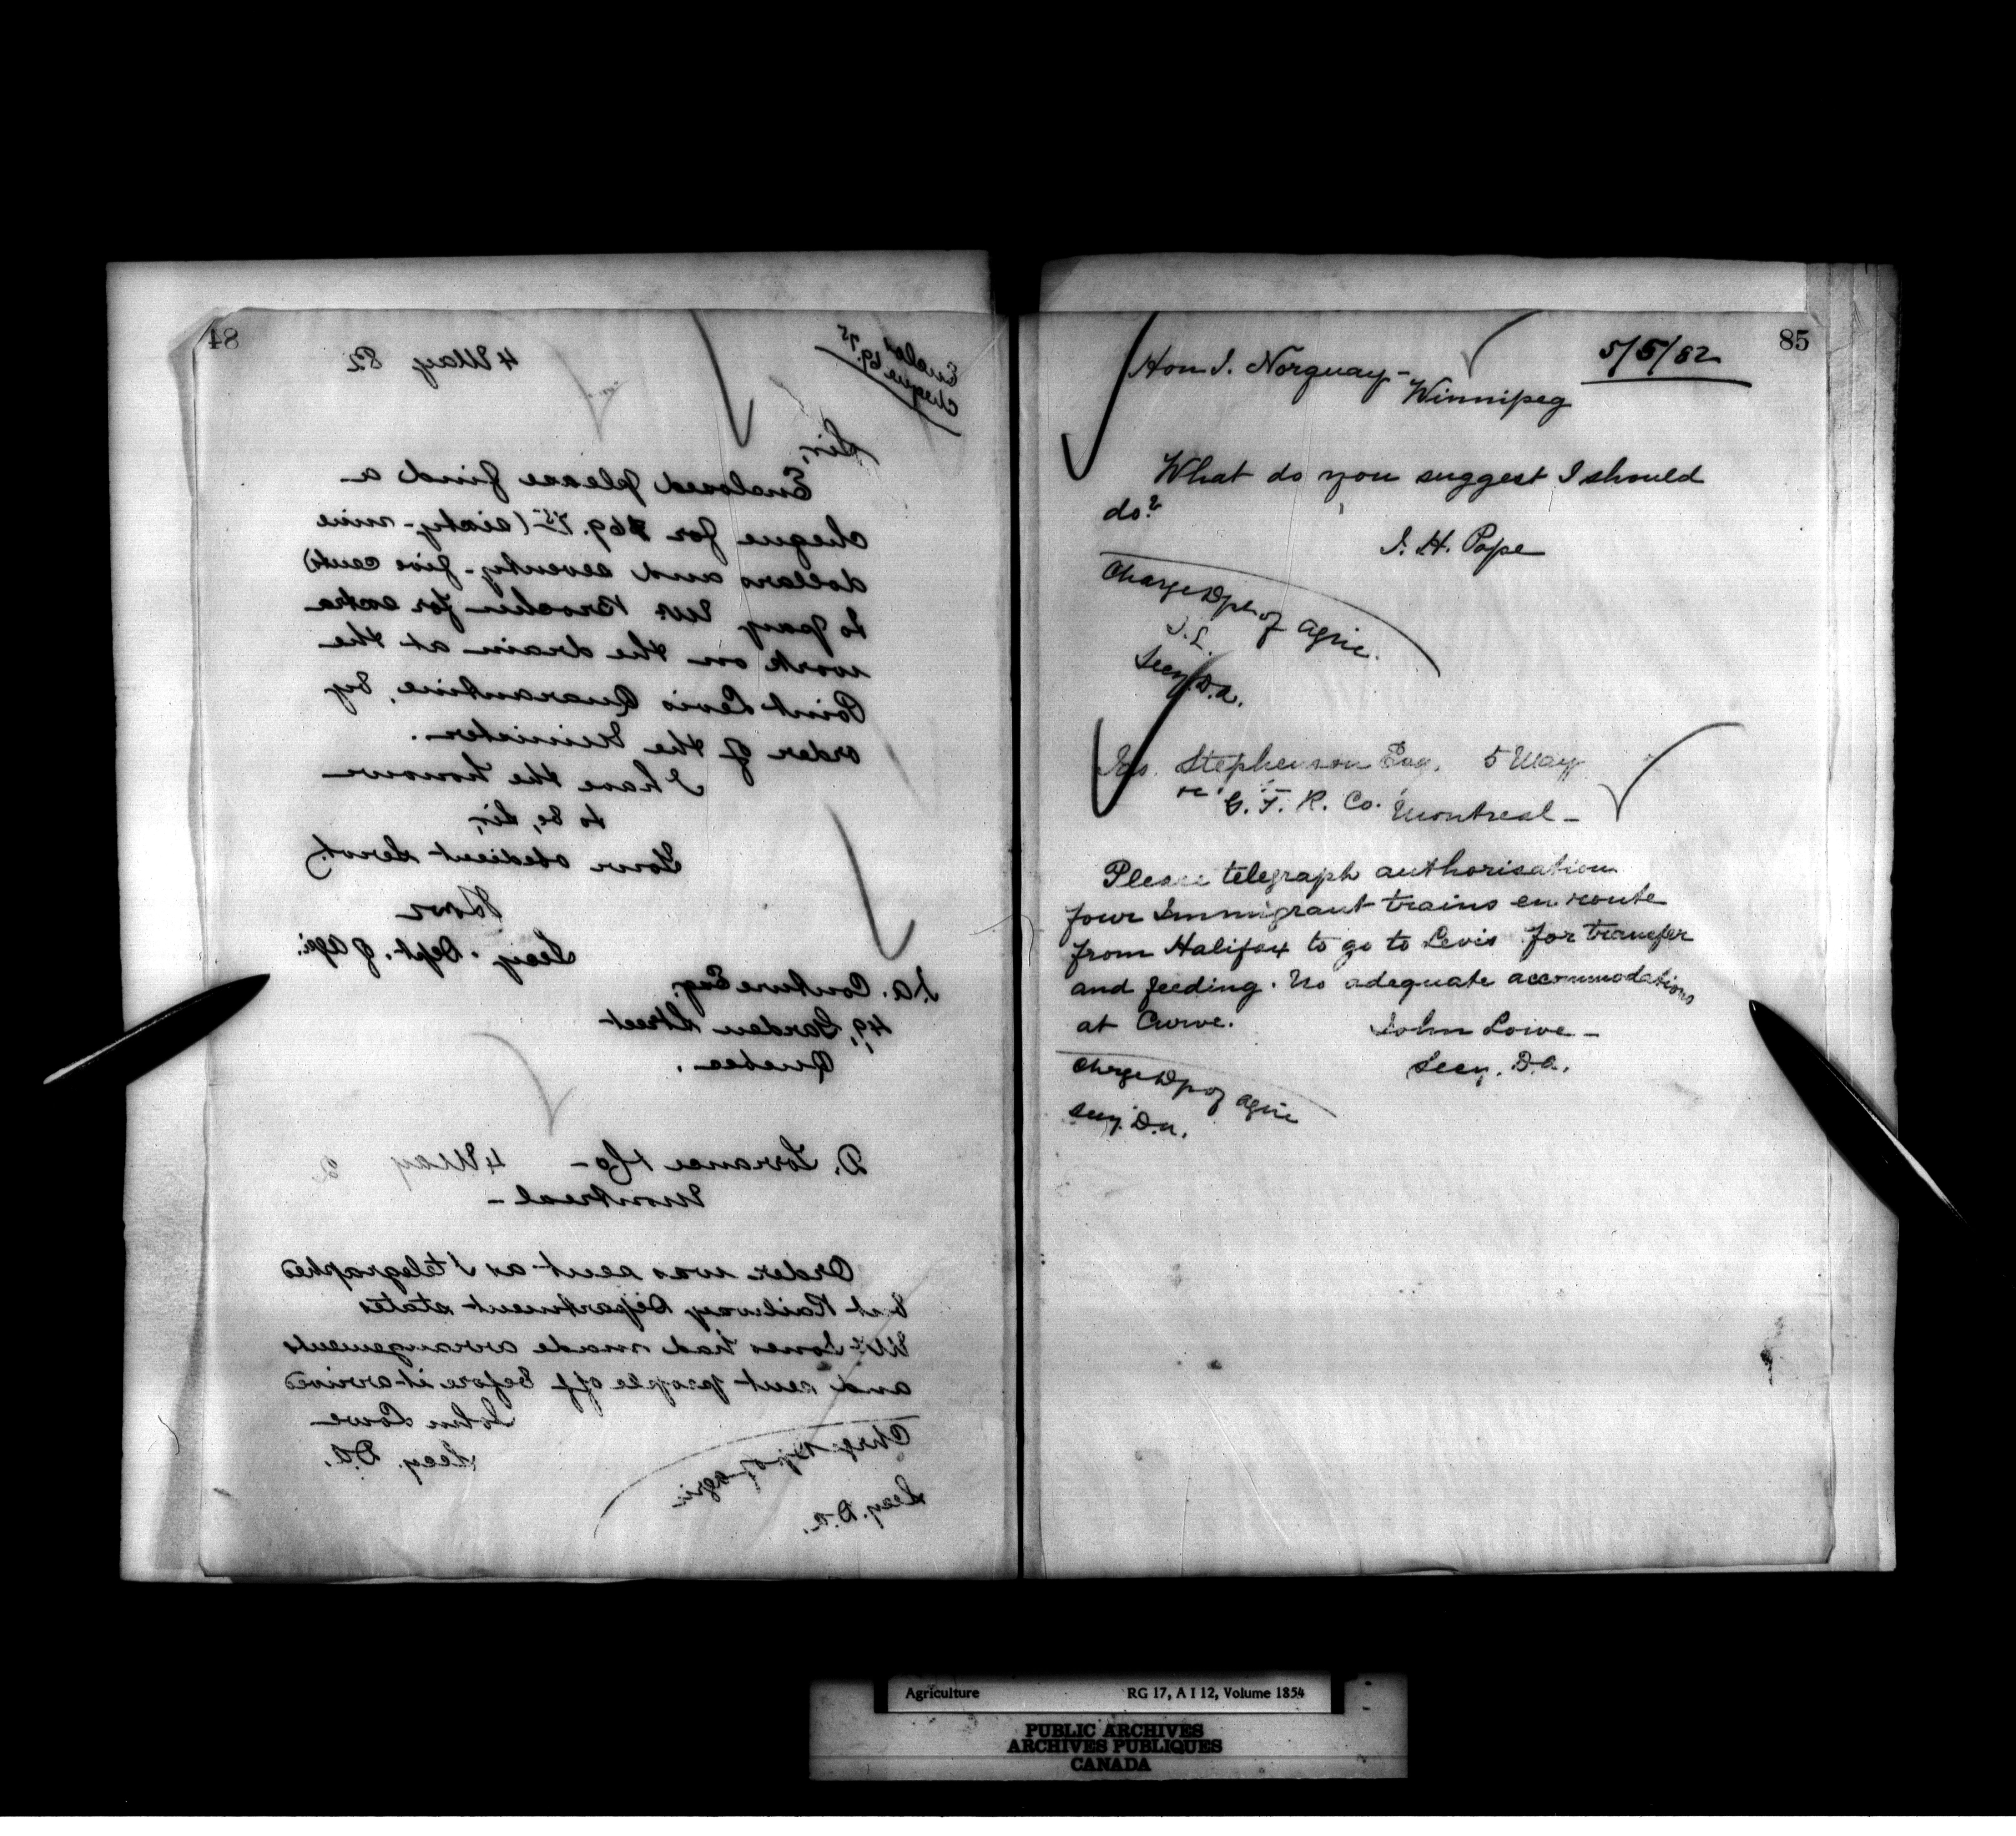 84
4 May 82
Enclos
Cheque 69.75
Sir,
Enclosed please find a
cheque for $69.75 (sixty-nine
dollars and seventy-five cents)
to pay Mr. for extra
work on the drain at the
Point Levis Quarantine, by
order of the Minister.
I have the honour
to be, Sir,
Your obedient Servt.
Lowe
Secy. Dept. of Agri.
J.A. Couture Esq.
49, Garden Street
Quebec.
D. Torrance & Co - 4 May 2
Montreal -
Order was sent as I telegraphed
but Railway Department states
Mr. Jones had made arrangements
and sent people off before it arrived
John Lowe
Secy. D.A.
Chrge Dp of Agri
Secy. D.A.
85
5/5/82
Hon J. Norquay -
Winnipeg
What do you suggest I should
do?
J. H. Pope
Charge Dpt of Agric.
J.L.
Secy D.A.
Stephenson Esq. 5 May
G. T. R. Co. Montreal -
Please telegraph authorisation
four Immigrant trains en route
from Halifax to go to Levis for transfer
and feeding. No adequate accommodations
at Curve.
John Lowe -
Secy. D.A.
Chrge Dp of Agric
Secy. D.A.
Agriculture RG 17, A I 12, Volume 1854
PUBLIC ARCHIVES
ARCHIVES PUBLIQUES
CANADA